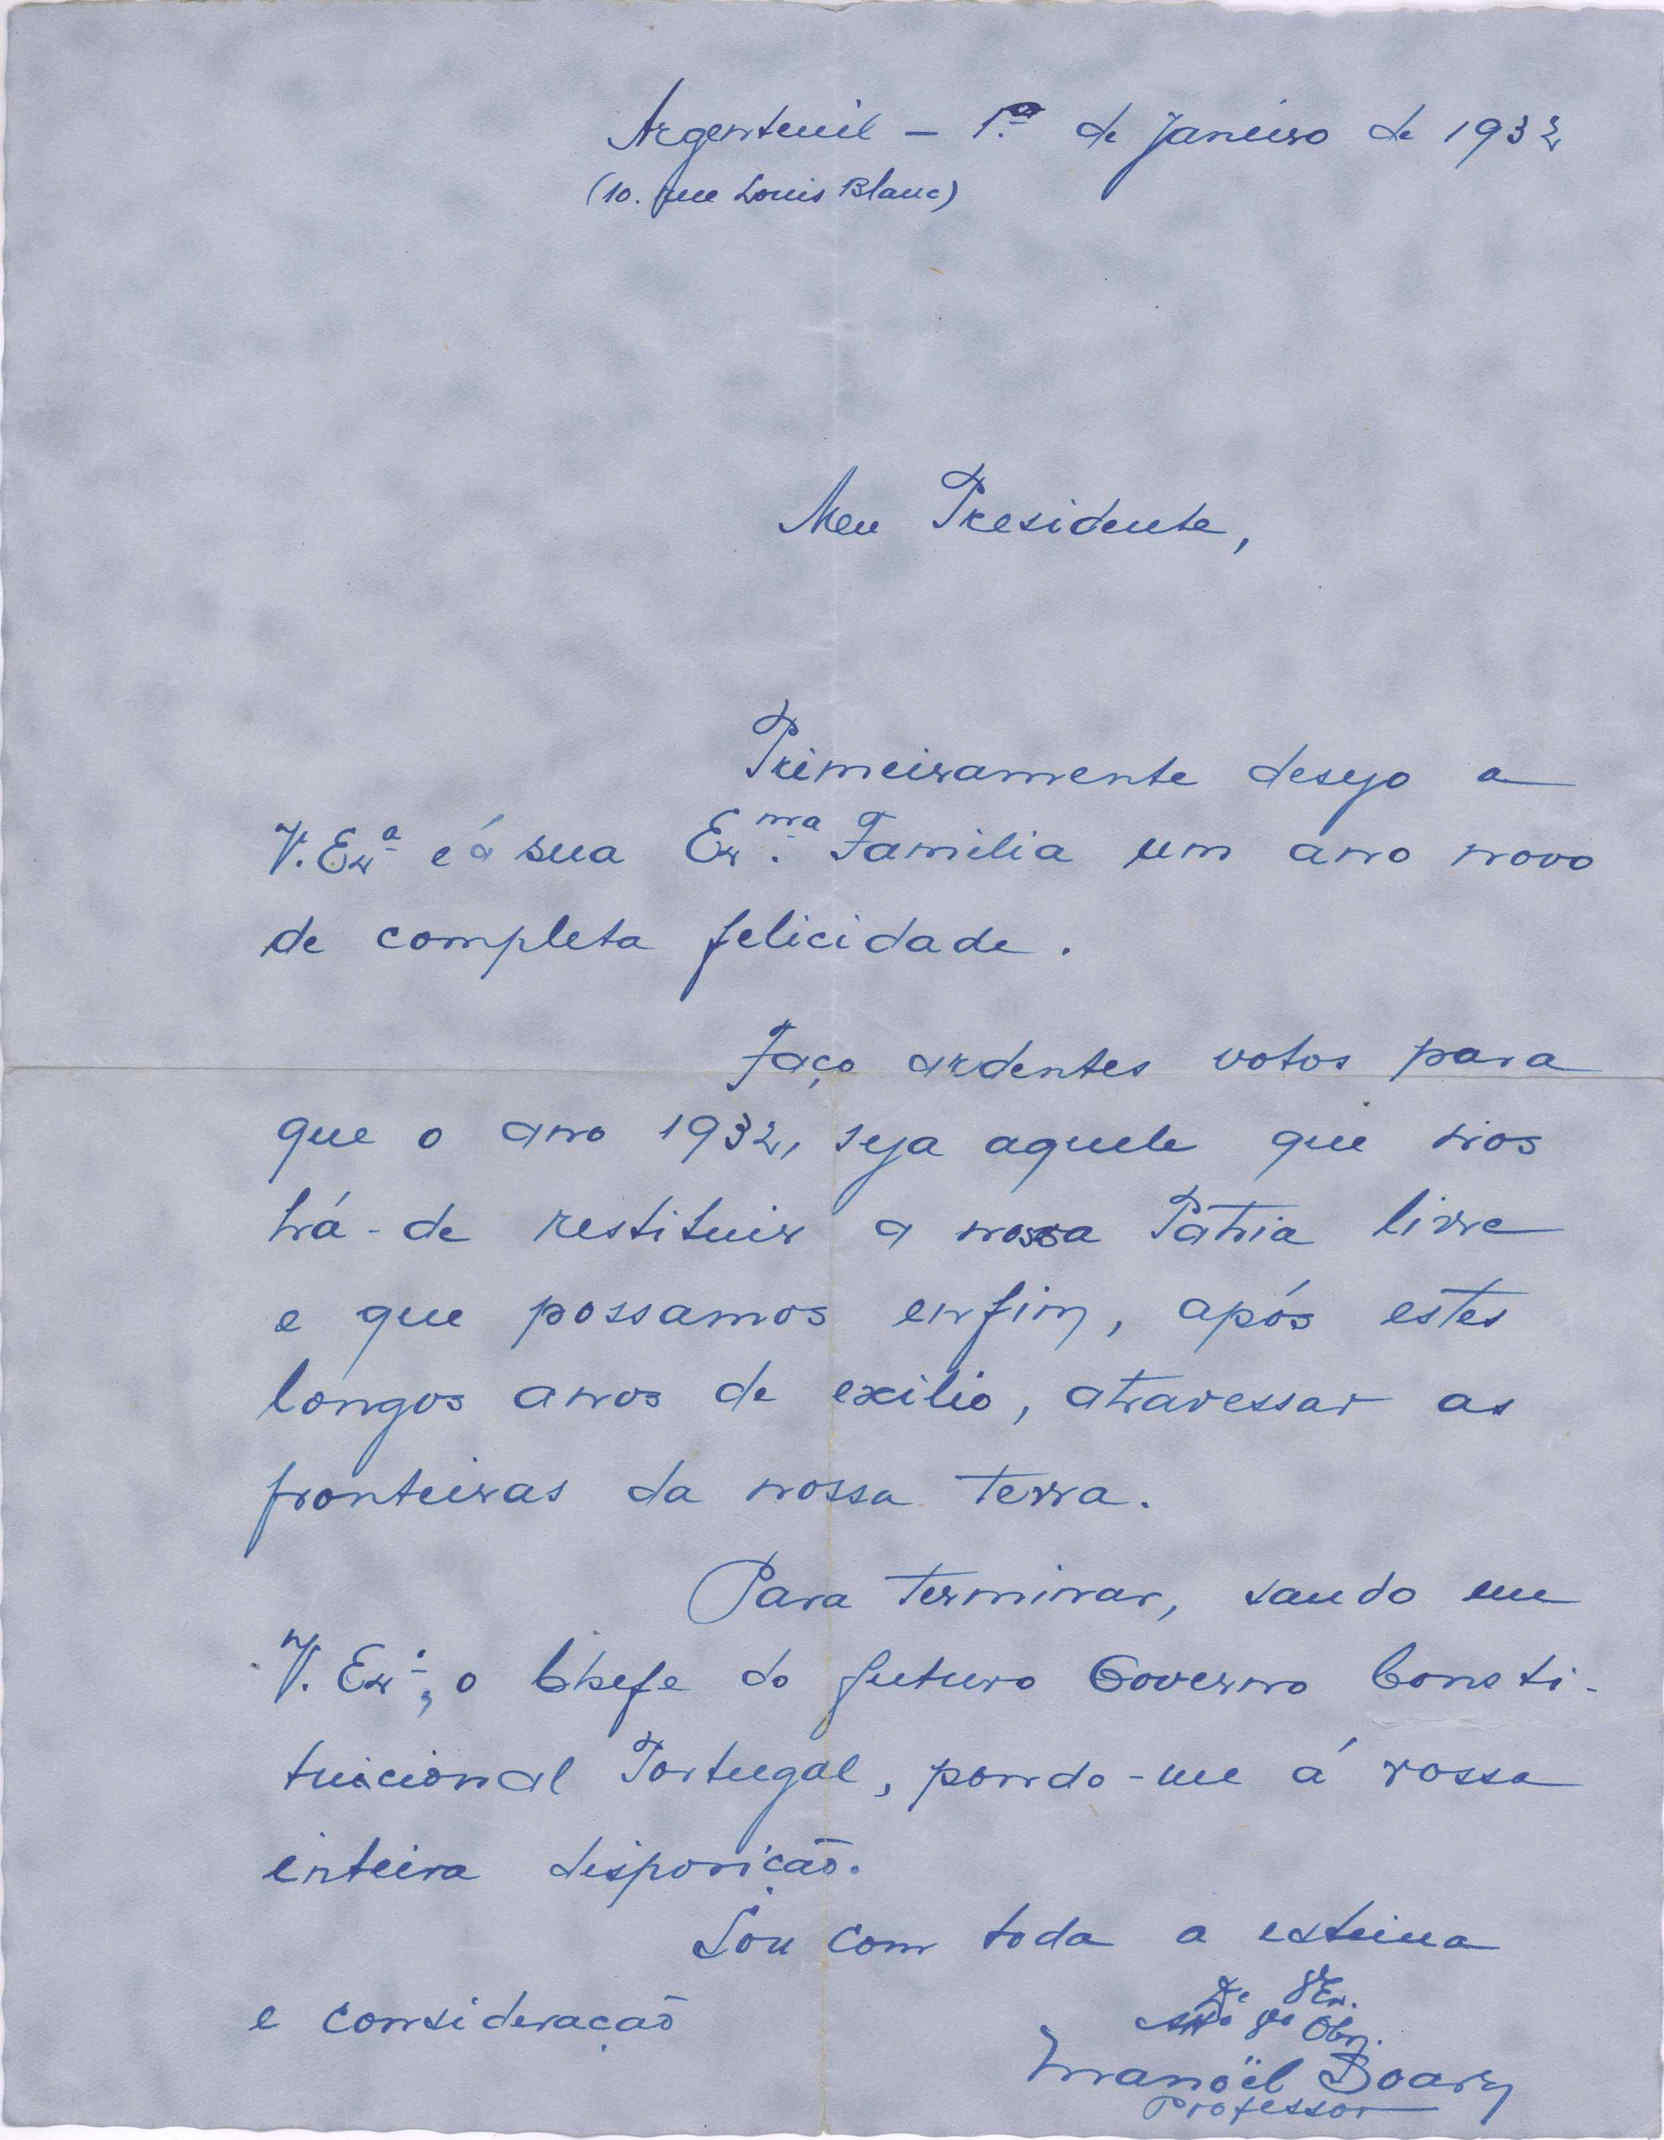 Argenteuil – 1.º de Janeiro de 1932
(10. rue Louis Blanc)
Meu Presidente,
Primeiramente desejo a
V. Exª e á sua Exma. Familia um ano novo
de completa felicidade.
Faço ardentes votos para
que o ano 1932, seja aquele que nos
há-de restituir a nossa Patria livre
e que possamos enfim, após estes
longos anos de exilio, atravessar as
fronteiras da nossa terra.
Para terminar, saudo em
V. Exª, o Chefe do futuro Governo Consti-
tuicional Portugal, pondo-me á vossa
inteira disposição.
Sou com toda a estima
e consideração
De V. Ex.
Obg.
Manoël
Professor